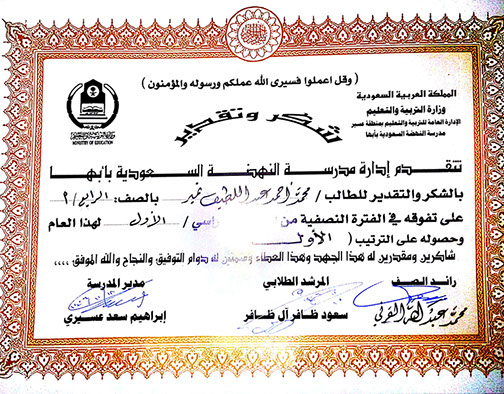 ( وقل اعملوا فسيرى الله عملكم ورسوله والمؤمنون )
المملكة العربية السعودية
وزارة التربية والتعليم
الإدارة العامة للتربية والتعليم بمنطقة عسير
مدرسة النهضة السعودية بأبها
MINISTRY OF EDUCATION
شكر وتقدير
تتقدم إدارة مدرسة النهضة السعودية بأبها
بالشكر والتقدير للطالب / محمد احمد عبد اللطيف نمير بالصف: الرابع / ٢
على تفوقه في الفترة النصفية من راسي / الأول لهذا العام
وحصوله على الترتيب ( الأول
شاكرين ومقدرين له هذا الجهد وهذا العطاء ومتمنين له دوام التوفيق والنجاح والله الموفق ,,,,
رائد الصف المرشد الطلابي مدير المدرسة
محمد عبد الله سعود ظافر آل ظافر إبراهيم سعد عسيري